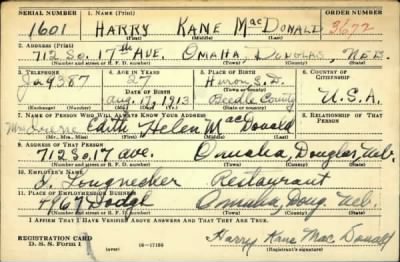 SERIAL NUMBER 1. NAME (Print) ORDER NUMBER
1601 HARRY KANE MACDONALD 3672
(First) (Middle) (Last)
2. ADDRESS (Print)
712 So. 17th AVE. OMAHA DOUGLAS, NEB.
(Number and street or R. F. D. number) (Town) (County) (State)
3. TELEPHONE 4. AGE IN YEARS 5. PLACE OF BIRTH 6. COUNTRY OF CITIZENSHIP
Ja 9387 27 Huron S.D.
DATE OF BIRTH (Town or county)
Aug. 17, 1913 Beedle County U.S.A.
(Exchange) (Number) (Mo.) (Day) (Yr.) (State or country)
7. NAME OF PERSON WHO WILL ALWAYS KNOW YOUR ADDRESS 8. RELATIONSHIP OF THAT PERSON
Edith Helen MacDonald
(Mr., Mrs., Miss) (First) (Middle) (Last)
9. ADDRESS OF THAT PERSON
712 So. 17 ave. Omaha, Douglas, Neb.
(Number and street or R. F. D. number) (Town) (County) (State)
10. EMPLOYER'S NAME
Restaurant
11. PLACE OF EMPLOYMENT OR BUSINESS
4967 Dodge Omaha, Doug. Neb.
(Number and street or R. F. D. number) (Town) (County) (State)
I AFFIRM THAT I HAVE VERIFIED ABOVE ANSWERS AND THAT THEY ARE TRUE.
REGISTRATION CARD
D. S. S. Form 1 16-17105 Harry Kane MacDonald
(Registrant's signature)